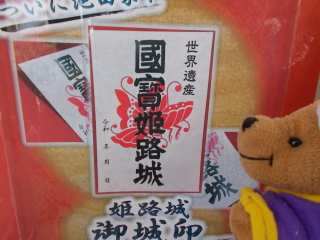 ついに
世界遺産
國寶姫路城
令和 年 月 日
國寶
路城
姫路城
御城印